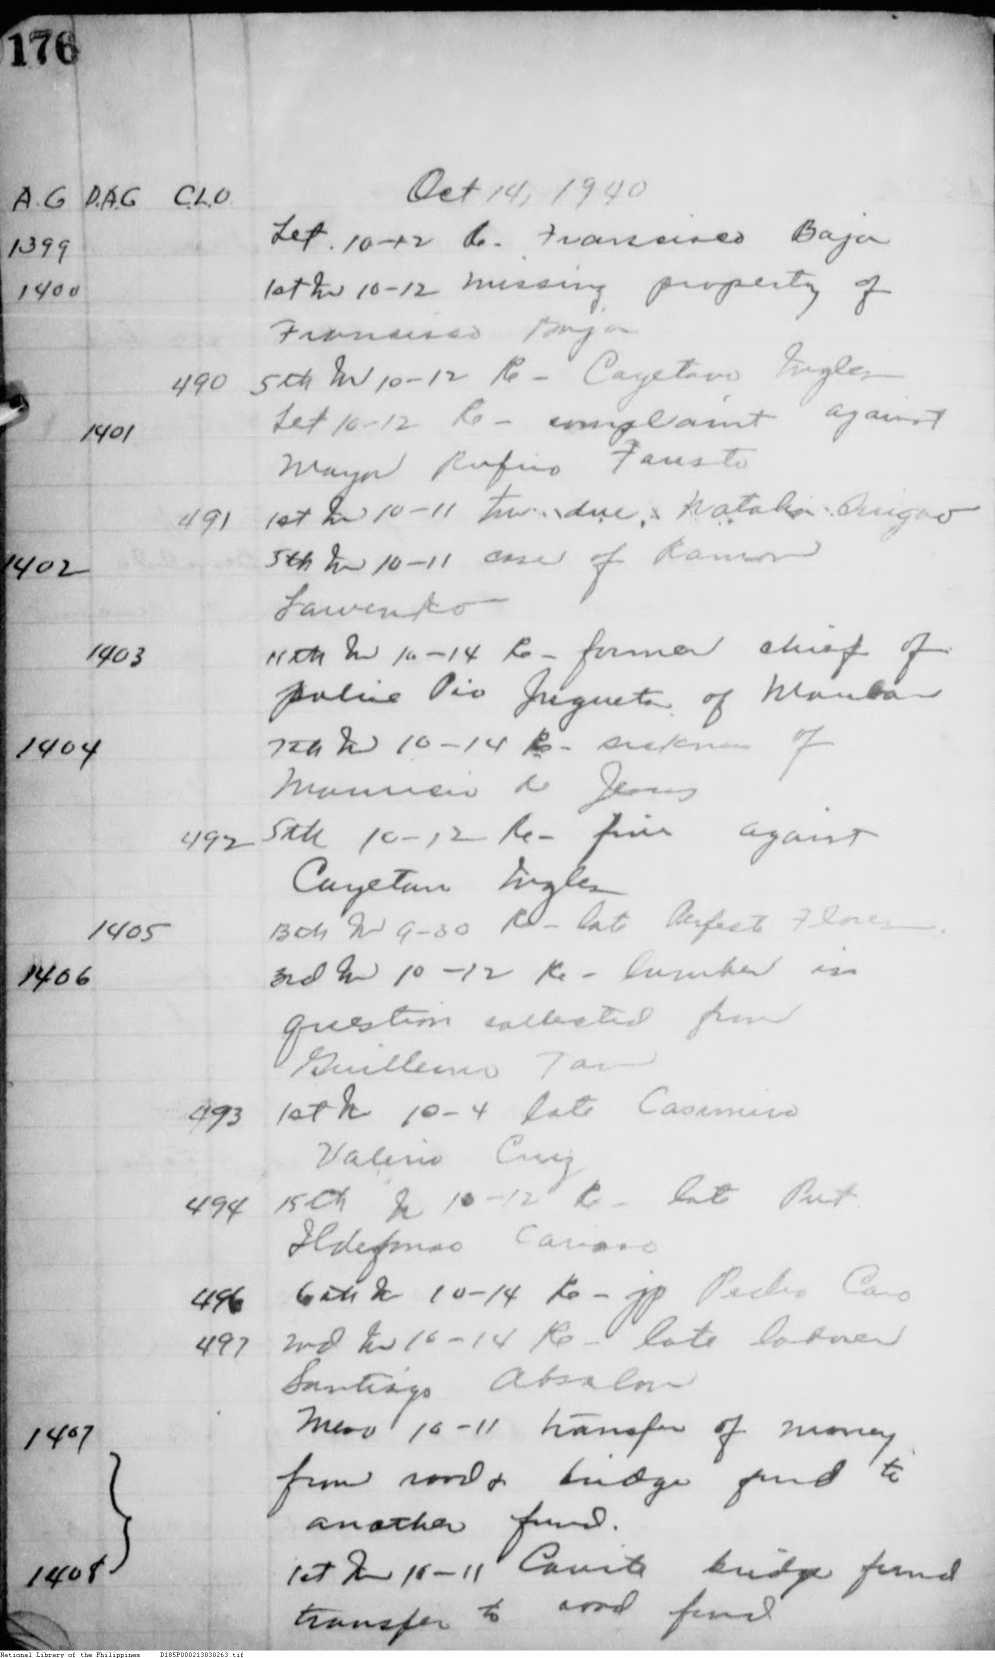 176
Oct 14, 1940
A.G D.A.G C.L.O
1399 Let. 10-12 Re. Francisco Baja
1400 1st In 10-12 missing property of
Francisco Baja
490 5th In 10-12 Re - Cayetano Ingles
1401 Let 10-12 Re - complaint against
Mayor Rufino Fausto
491 1st In 10-11 due, Natalia
1402 5th In 10-11 case of Ramon
1403 11th In 10-14 Re - former chief of
police Pio of Mauban
1404 7th In 10-14 Re - sickness of
Mauricio de Jesus
492 5th 10-12 Re - fine against
Cayetano Ingles
1405 13th In 9-30 Re - late Perfecto Flores.
1406 3rd In 10-12 Re - lumber in
question collected from
Guillermo Tan
493 1st In 10-4 late Casimiro
Valerio Cruz
494 15th In 10-12 Re - late Pvt.
Ildefonso Cariaso
496 6th In 10-14 Re - jp Pedro Caro
497 2nd In 10-14 Re - late laborer
Santiago Absalon
1407 Memo 10-11 transfer of money
from road & bridge fund to
another fund.
1408 1st In 10-11 Cavite bridge fund
transfer to road fund
National Library of the Philippines D185P000213830263.tif